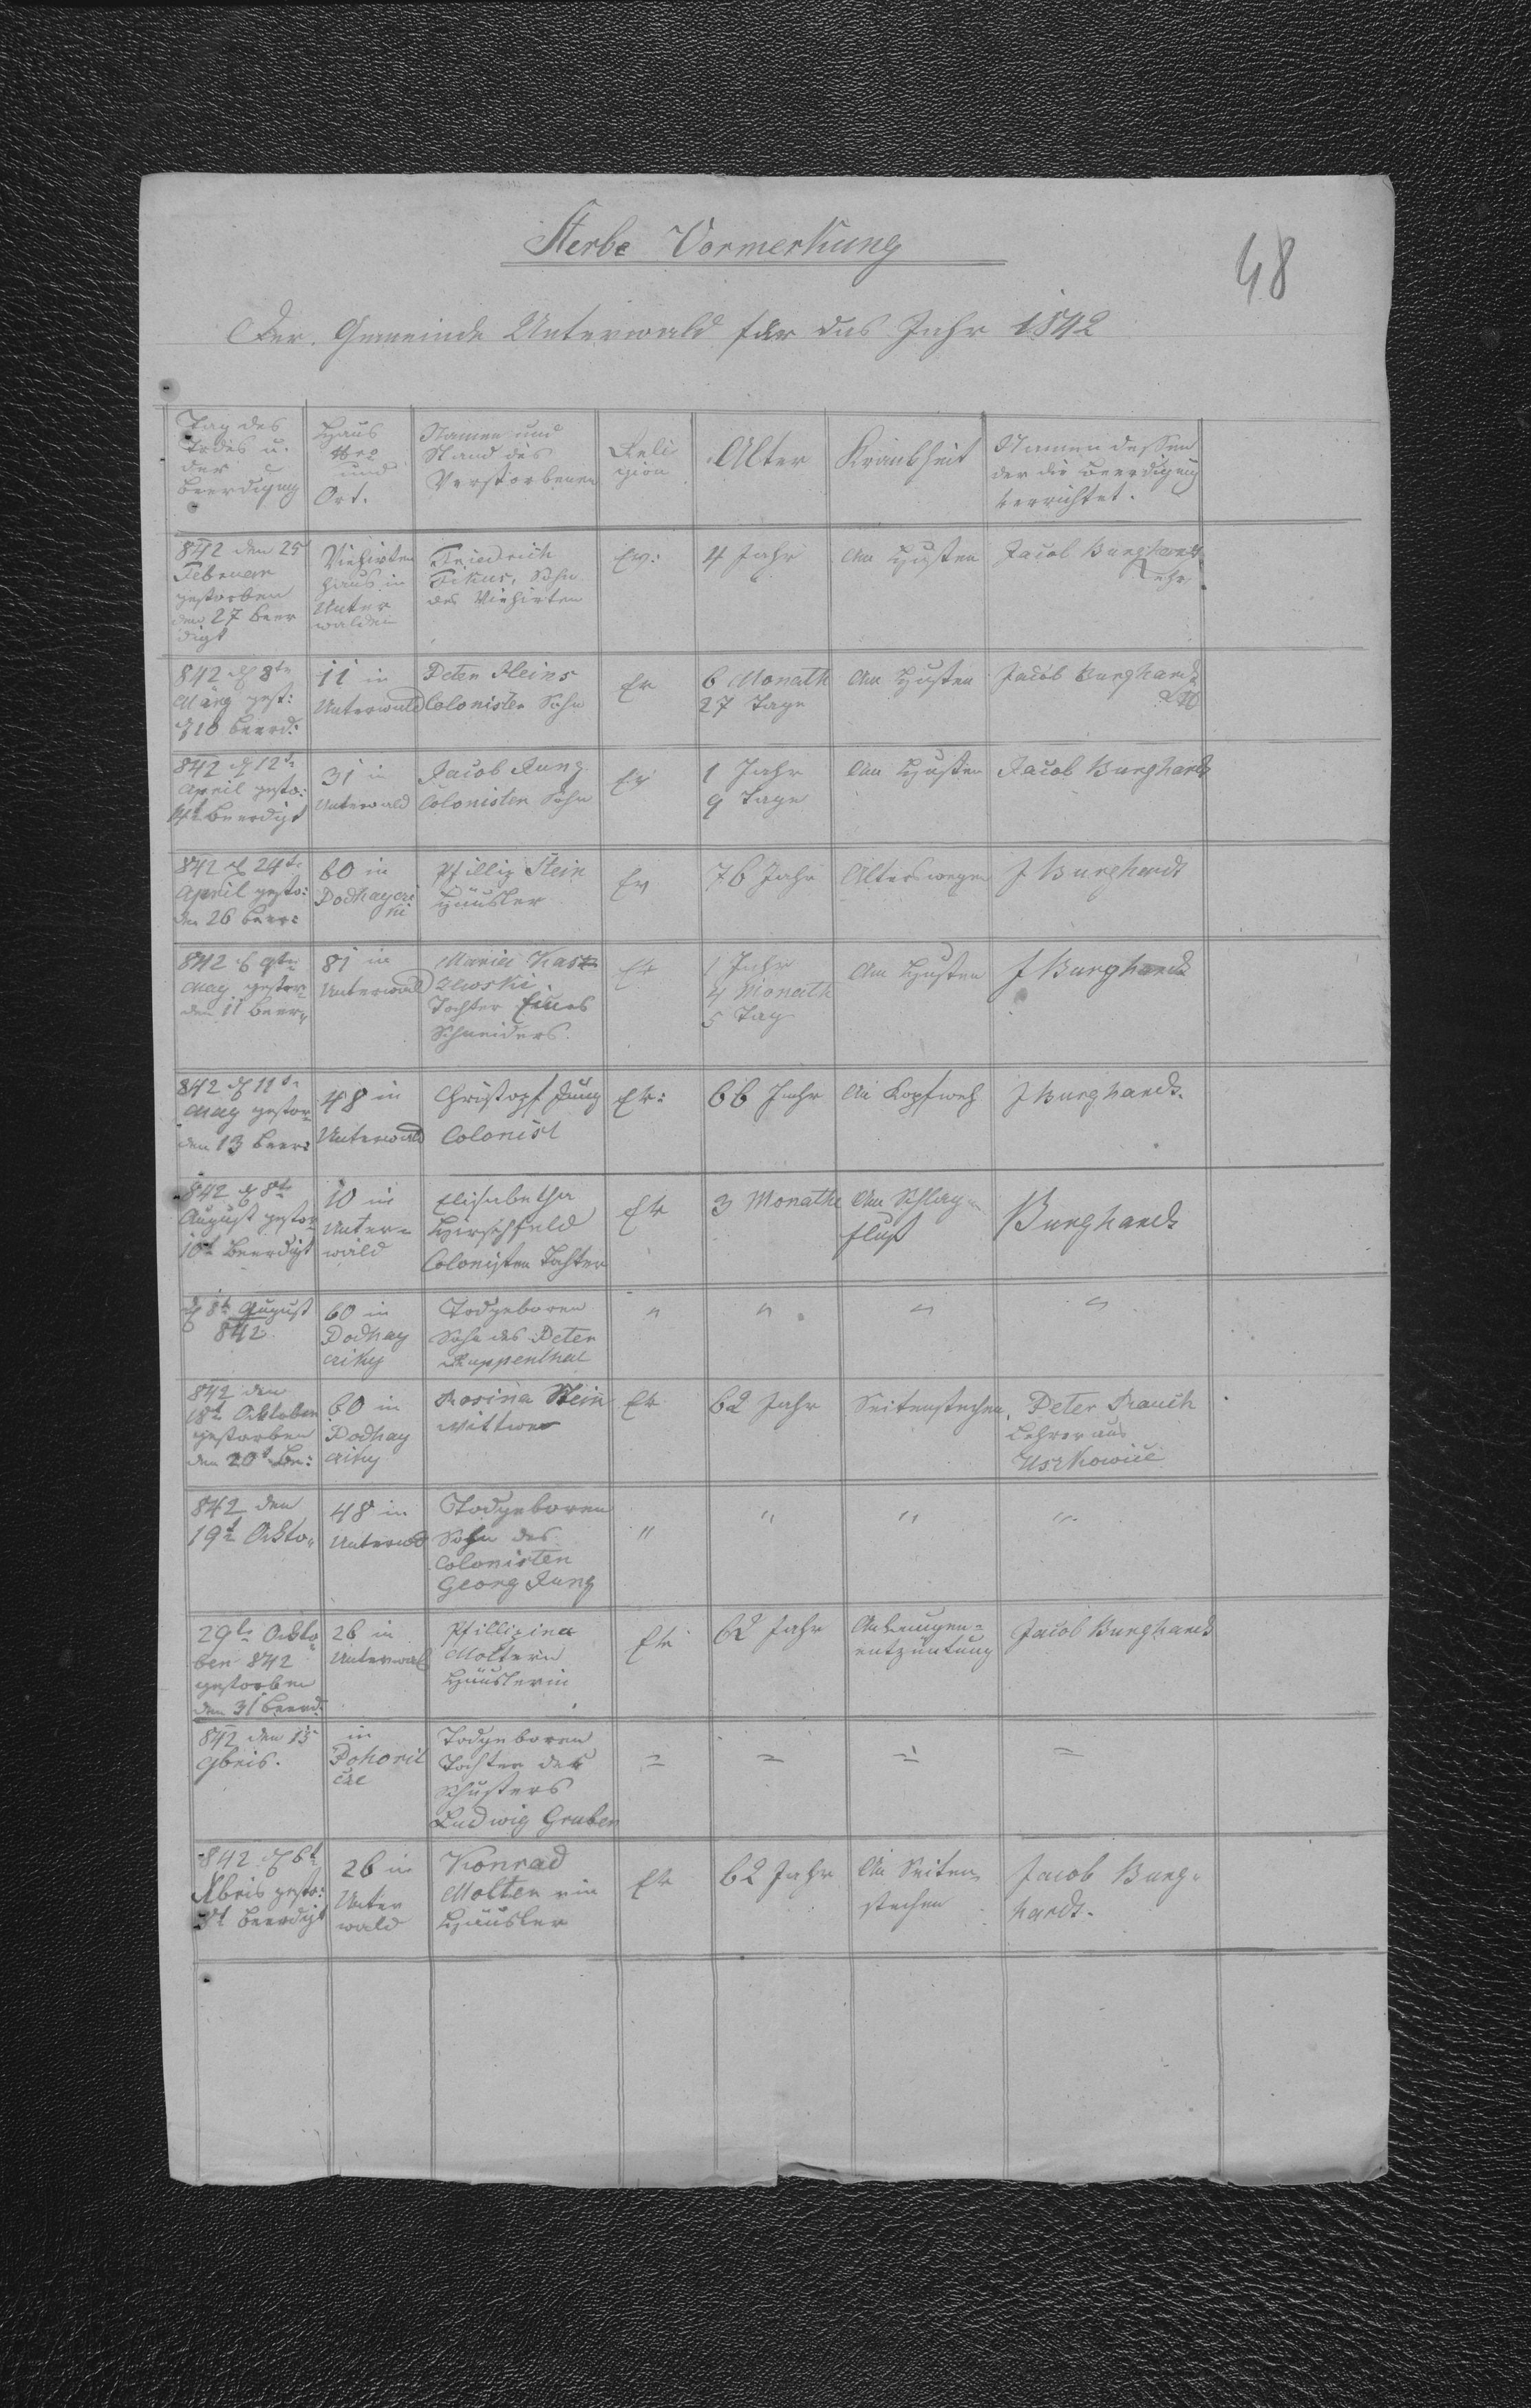 Sterbe Vormerkung
48
Der Gemeinde Unterwald für das Jahr 1842
Tag des
Todes u.
der
Beerdigung
Haus
Nro
und
Ort.
Namen und
Stand des
Verstorbenen
Reli
gion
Alter
Krankheit
Namen dessen
der die Beerdigung
verrichtet.
842 den 25
Februar
gestorben
den 27 beer
digt
Viehirten
haus in
Unter
walde
Friedrich
Fikus, Sohn
des Viehirten
Ev:
4 Jahr
Am Husten
Jacob Burghardt
Lehr
842 d 8te
März gest:
d 10 beerd:
11 in
Unterwald
Peter Heins
Colonisten Sohn
Ev
6 Monath
27 Tage
Am Husten
Jacob Burghardt
842 d 12te
April gesto:
14t beerdigt
31 in
Unterwald
Jacob Jung
Colonisten Sohn
Ev
1 Jahr
9 Tage
Am Husten
Jacob Burghardt
842 d 24te
April gesto:
den 26 beer:
60 in
Podhayczi
ki
Pfillip Stein
Häusler
Ev
76 Jahr
Alterswegen
J Burghardt
842 d 9te
May gestor
den 11 beer
81 in
Unterwald
Maria Kas
zewski
Tochter eines
Schneiders
Ev
1 Jahr
4 Monath
5 Tag
Am Husten
J Burghardt
842 d 11te
May gestor
den 13 beer:
48 in
Unterwald
Christopf Jung
Colonist
Ev:
66 Jahr
An Kopfweh
J Burghardt.
842 d 8te
August gestor
10t beerdigt
10 in
Unter=
wald
Elisabetha
Hirschfeld
Colonisten Tochter
Ev
3 Monathe
Am Schlag=
fluß
Burghardt
d 8t August
842
60 in
Podhay
cziky
Todgeboren
Sohn des Peter
Ruppenthal
" " " "
842 den
18t Oktober
gestorben
den 20t be:
60 in
Podhay
cziky
Rosina Stein
Wittwe
Ev
62 Jahr
Seitenstechen
Peter Rauch
Lehrer aus
Uszkowice
842 den
19t Okto"
48 in
Unterwd
Todgeboren
Sohn des
Colonisten
Georg Jung
" " " "
29te Okto
ber 842
gestorben
den 31 beerd:
26 in
Unterwal
Pfillipina
Moltern
Häuslerin
Ev
62 Jahr
An Lungen=
entzüntung
Jacob Burghardt
842 den 15
9bris.
in
Pohoril
cze
Todgeboren
Tochter des
Schusters
Ludwig Gruber
= = = =
842 d 6t
Xbris gesto:
8t beerdigt
26 in
Unter
wald
Konrad
Molter ein
Häusler
Ev
62 Jahr
An Seiten
stechen
Jacob Burg=
hardt.